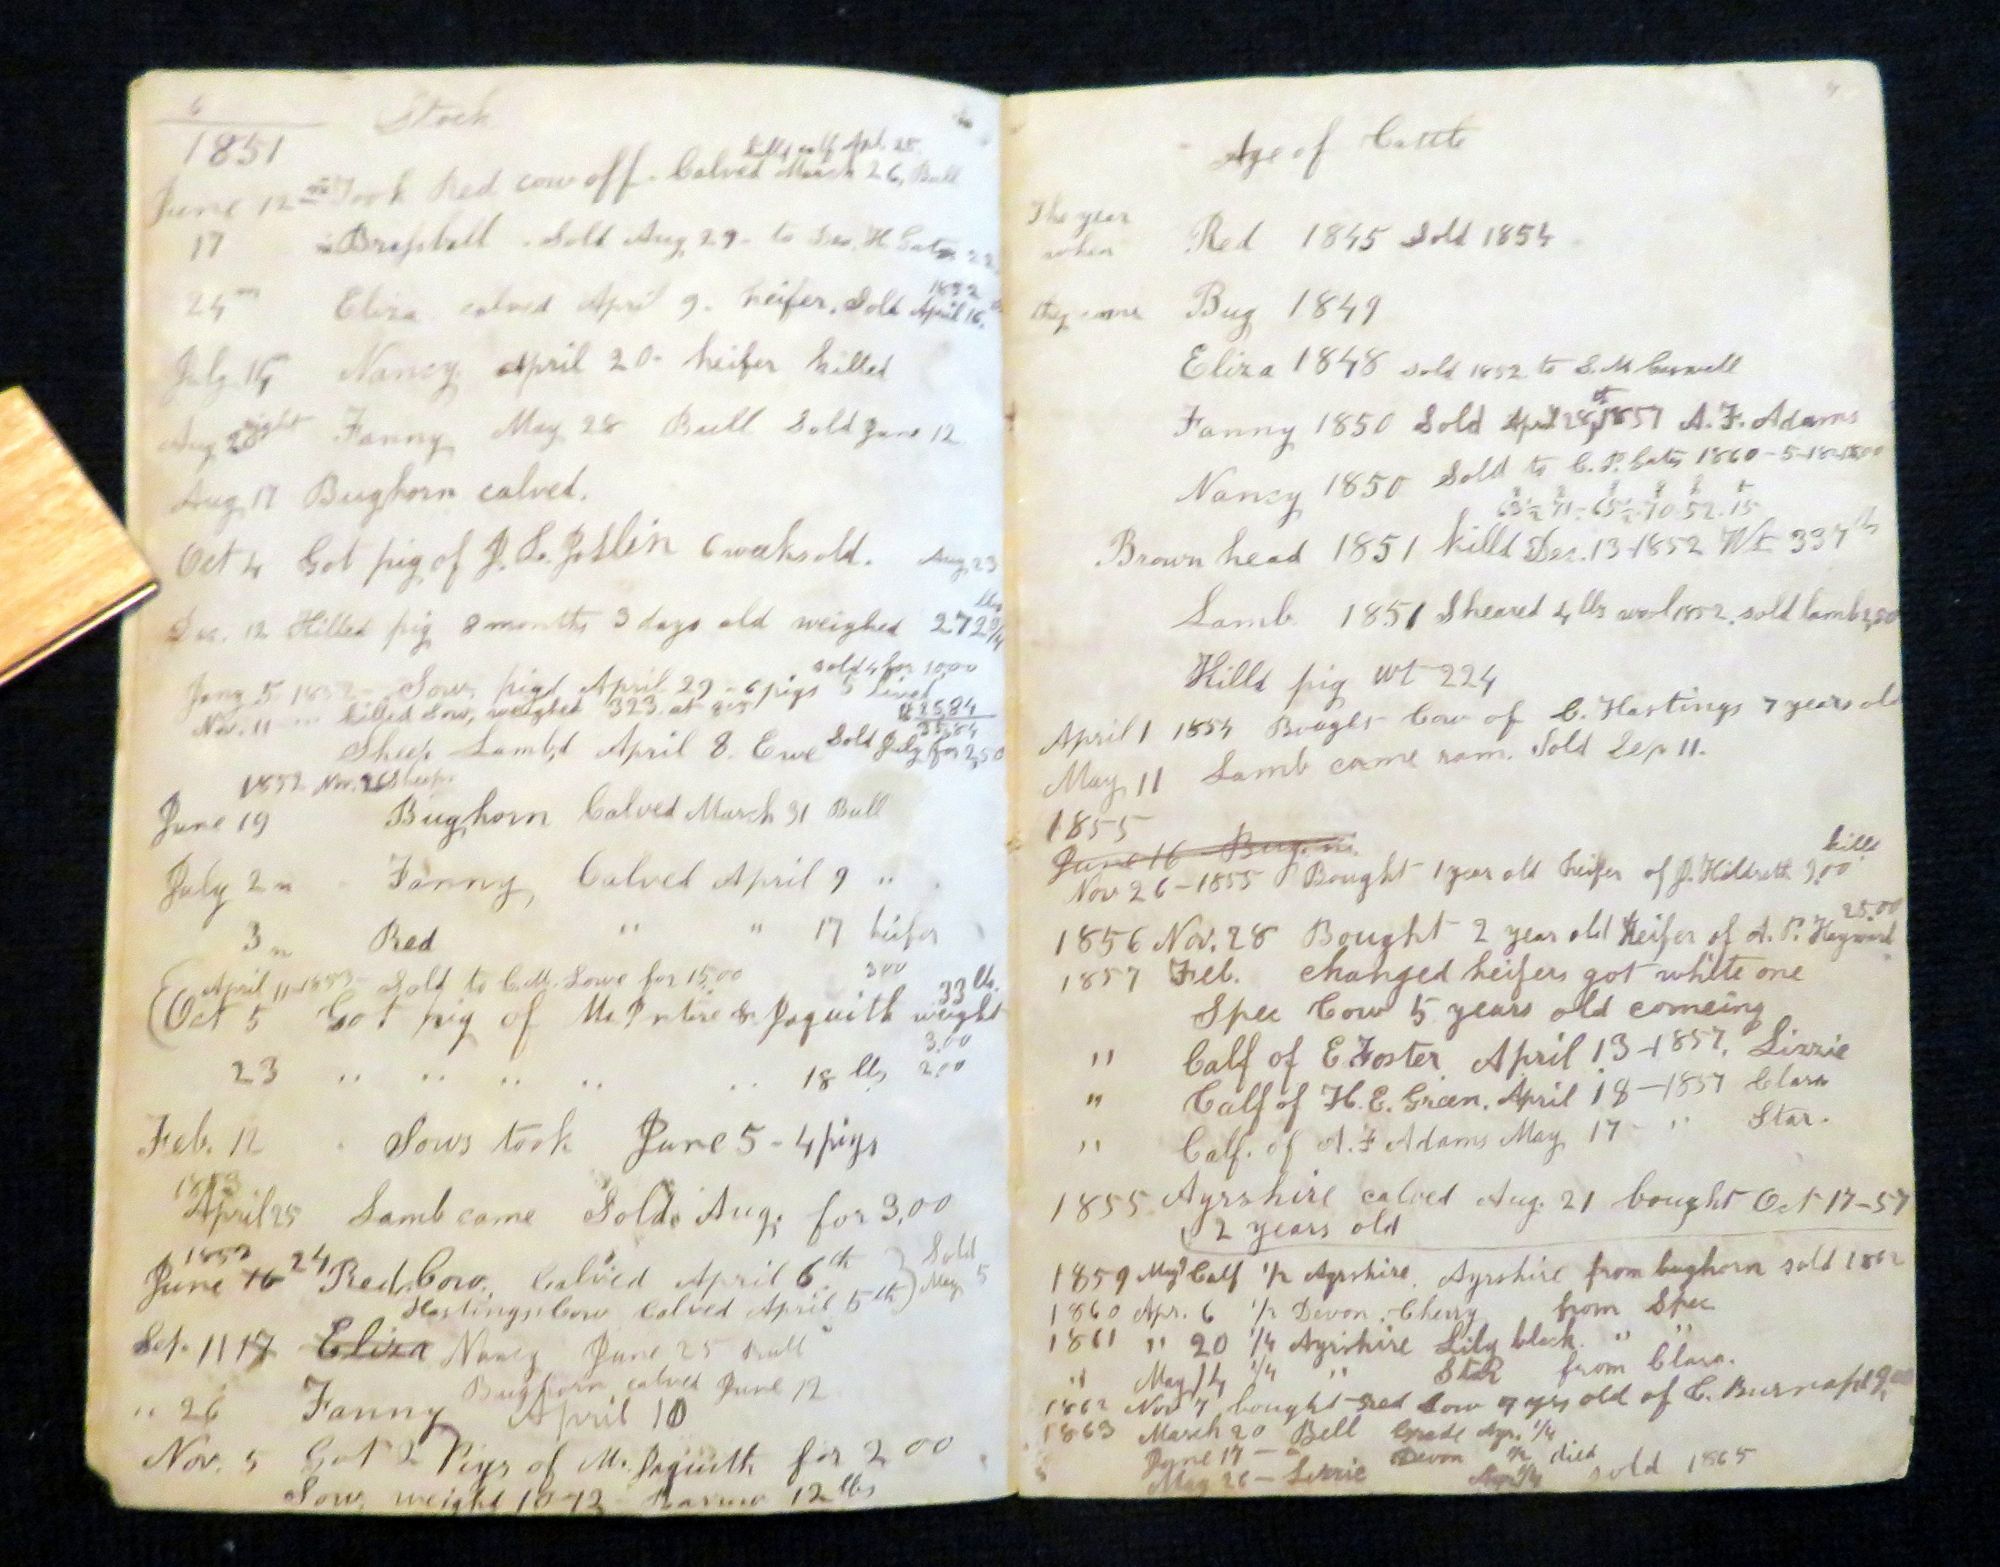 6 Stock
1851
Kills calf Apl. 25.
June 12 Took Red cow off - Calved March 26, Bull
17 Sold Aug 29 - to Geo. H. Gates 22
1852
24 Eliza calved April 9. heifer. Sold April 16
July Nancy April 20 - heifer killed
Aug night Fanny May 28 Bull Sold June 12
Aug 17 Bughorn calved.
Oct 4 Got pig of J. S. Joslin 6 weeks old. Aug 23
lbs
Dec. 12 Killed pig 8 months 3 days old weighed 272
sold 4 for 10,00
5 1852 - Sow, pigd April 29 - 6 pigs 5 lived
Nov. 11 killed Sow, weighed 323 at 25,84
35,84
Sheep Lambd April 8. Ewe Sold July for 2,50
1852 Nov. 26 Sheep
June 19 Bughorn Calved March 31 Bull
July 2 n Fanny Calved April 9 "
3 n Red " " 17 heifer
April 11 - 1853 - Sold to C. M. Lowe for 15,00 300 33 lbs.
Oct 5 Got pig of McIntire & Jaquith weight
3,00
23 " " " " " 18 lbs 2,00
Feb. 12 Sows took June 5 - 4 pigs
1853
April 25 Lamb came Sold Aug. for 3,00
1853 Sold
June 16 24 Red Cow. Calved April 6th May 5
Hastings Cow Calved April 5th
Sep. 11 17 Eliza Nancy June 25 Bull
Bughorn calved June 12
" 26 Fanny April 10
Nov. 5 Got 2 Pigs of M. Jaquith for 2 00
Sow weight 10-12 - Barrow 12 lbs
Age of Cattle
The year
when Red 1845 Sold 1854
they came Bug 1849
Eliza 1848 sold 1852 to S. M.
Fanny 1850 Sold April 28th 1857 A. F. Adams
Nancy 1850 Sold to C. P. Gates 1860 - 5
63½ 71 - 65½ 70 52 . 15
Brown head 1851 killd Dec. 13 - 1852 Wt 337 lbs
Lamb 1851 Sheared 4 lbs wool 1852. sold lamb 2,50
Killd pig wt 224
April 1 1854 Bought Cow of C. Hastings 7 years old
May 11 Lamb came ram. Sold Sep 11.
1855
June 16 - Bug.
killd
Nov 26 - 1855 Bought 1 year old heifer of J. Hildreth 9,00
25,00
1856 Nov. 28 Bought 2 year old Heifer of A. P. Hayward
1857 Feb. changed heifers got white one
Spec Cow 5 years old comeing
" Calf of E Foster April 13 - 1857, Lizzie
" Calf of H. E. Green. April 18 - 1857 Clara
" Calf. of A. F Adams May 17 - " Star.
1855 Ayrshire calved Aug. 21 bought Oct 17 - 57
2 years old
1859 May Calf ½ Ayrshire. Ayrshire from bughorn sold 1862
1860 Apr. 6 ½ Devon. Cherry from Spec
1861 " 20 ¼ Ayrshire Lily black " "
" May 14 ¼ " Star from Clara.
1862 Nov 7 bought red Cow 7 yrs old of C. Burnap
1863 March 20 Bell Grade Ayr. ¼
June 17 - " Devon ½ died
May 26 - Lizzie Ayr ¼ sold 1865